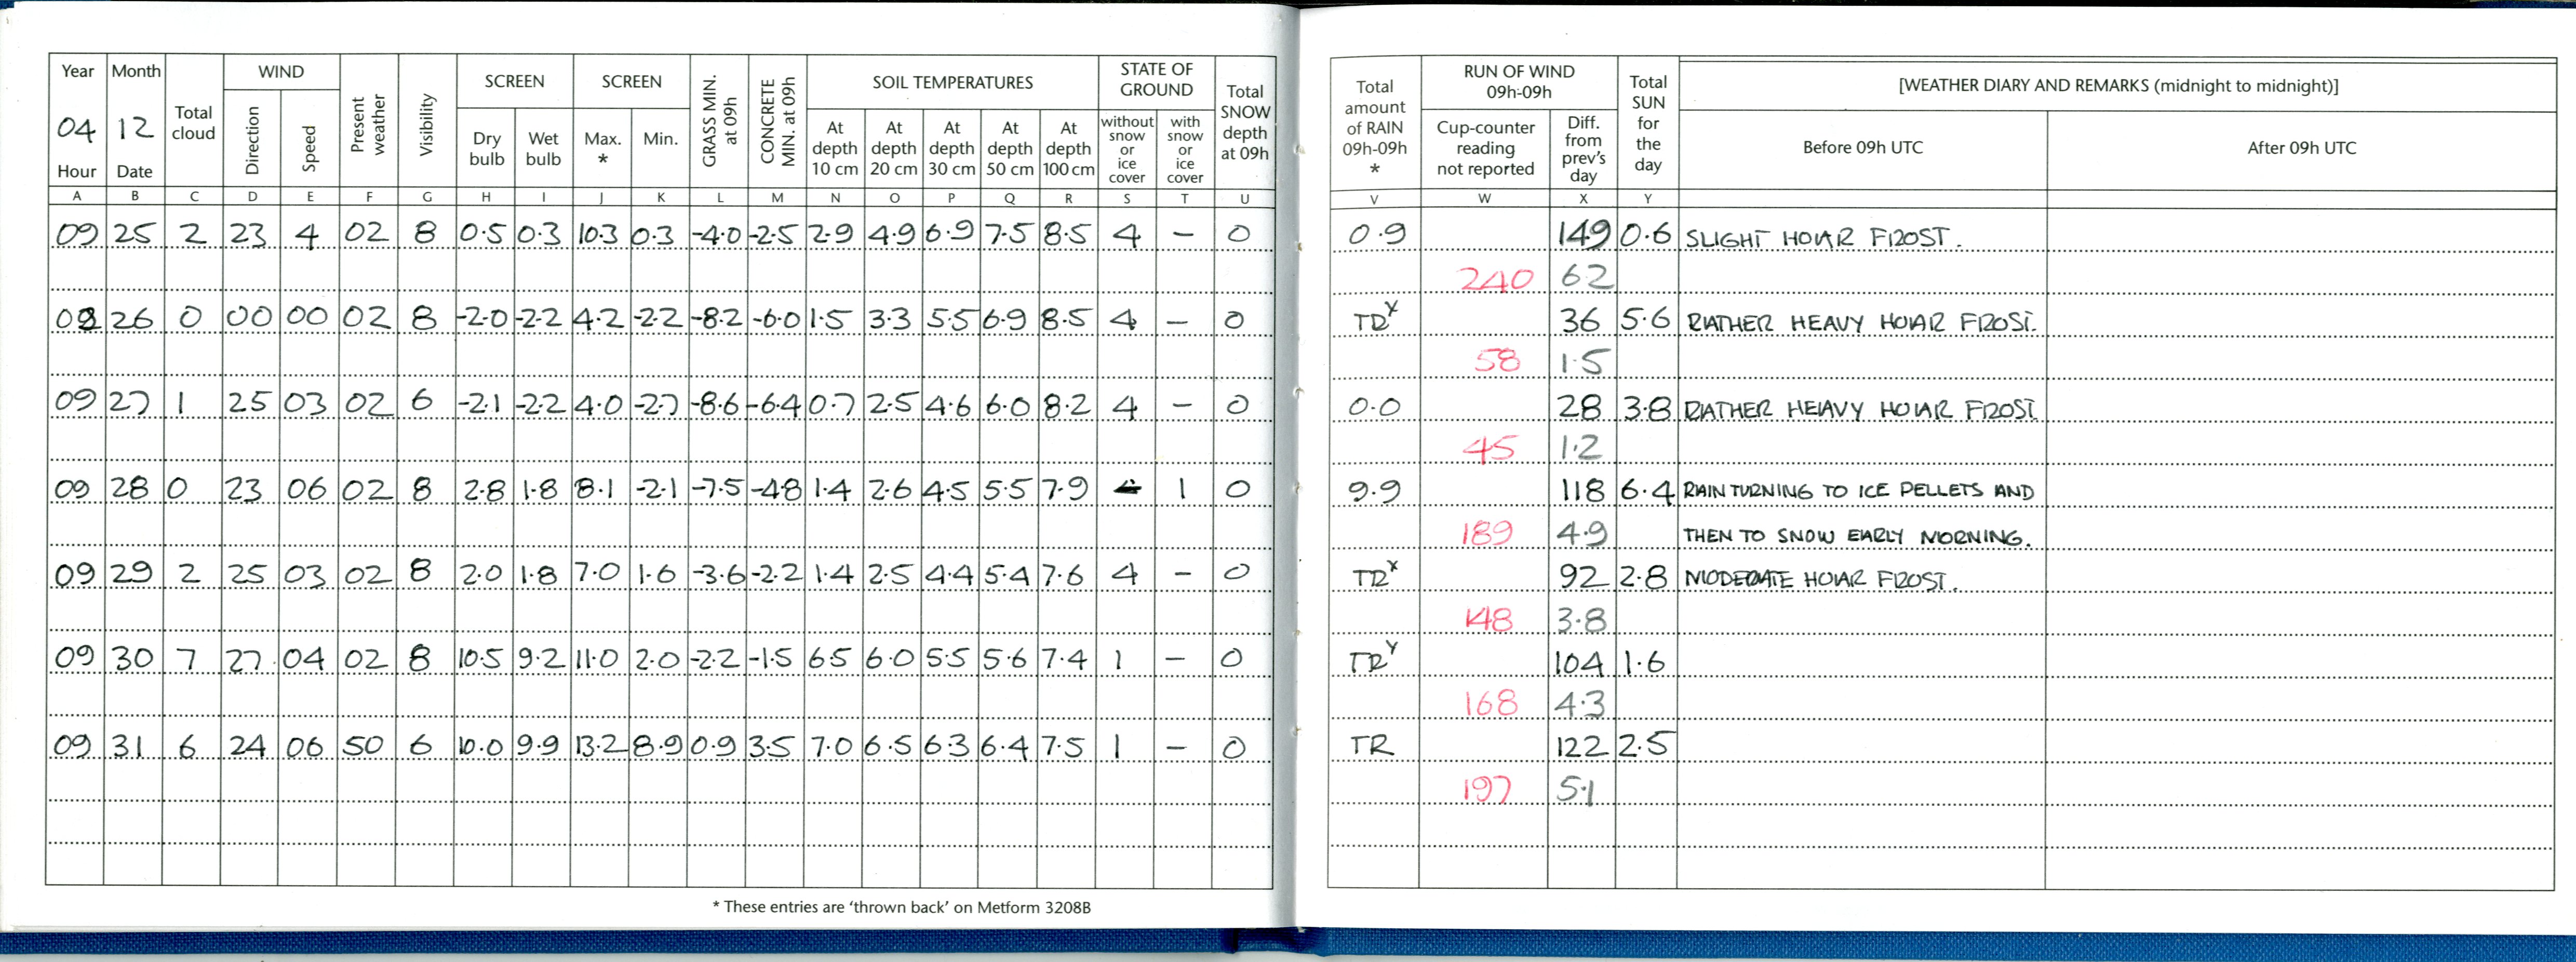 Year Month Total cloud WIND Present weather Visibility SCREEN SCREEN GRASS MIN. at 09h CONCRETE MIN. at 09h SOIL TEMPERATURES STATE OF GROUND Total SNOW depth at 09h
04 12 Direction Speed Dry bulb Wet bulb Max. * Min. At depth 10 cm At depth 20 cm At depth 30 cm At depth 50 cm At depth 100 cm without snow or ice cover with snow or ice cover
Hour Date
A B C D E F G H I J K L M N O P Q R S T U
09 25 2 23 4 02 8 0.5 0.3 10.3 0.3 -4.0 -2.5 2.9 4.9 6.9 7.5 8.5 4 – 0
09 26 0 00 00 02 8 -2.0 -2.2 4.2 -2.2 -8.2 -6.0 1.5 3.3 5.5 6.9 8.5 4 – 0
09 27 1 25 03 02 6 -2.1 -2.2 4.0 -2.7 -8.6 -6.4 0.7 2.5 4.6 6.0 8.2 4 – 0
09 28 0 23 06 02 8 2.8 1.8 8.1 -2.1 -7.5 -4.8 1.4 2.6 4.5 5.5 7.9 1 0
09 29 2 25 03 02 8 2.0 1.8 7.0 1.6 -3.6 -2.2 1.4 2.5 4.4 5.4 7.6 4 – 0
09 30 7 27 04 02 8 10.5 9.2 11.0 2.0 -2.2 -1.5 6.5 6.0 5.5 5.6 7.4 1 – 0
09 31 6 24 06 50 6 10.0 9.9 13.2 8.9 0.9 3.5 7.0 6.5 6.3 6.4 7.5 1 – 0
* These entries are ‘thrown back’ on Metform 3208B
Total amount of RAIN 09h-09h * RUN OF WIND 09h-09h Total SUN for the day [WEATHER DIARY AND REMARKS (midnight to midnight)]
Cup-counter reading not reported Diff. from prev's day Before 09h UTC After 09h UTC
V W X Y
0.9 149 0.6 SLIGHT HOAR FROST.
240 6.2
TR 36 5.6 RATHER HEAVY HOAR FROST.
58 1.5
0.0 28 3.8 RATHER HEAVY HOAR FROST
45 1.2
9.9 118 6.4 RAIN TURNING TO ICE PELLETS AND
189 4.9 THEN TO SNOW EARLY MORNING.
TR 92 2.8 MODERATE HOAR FROST.
148 3.8
TR 104 1.6
168 4.3
TR 122 2.5
197 5.1